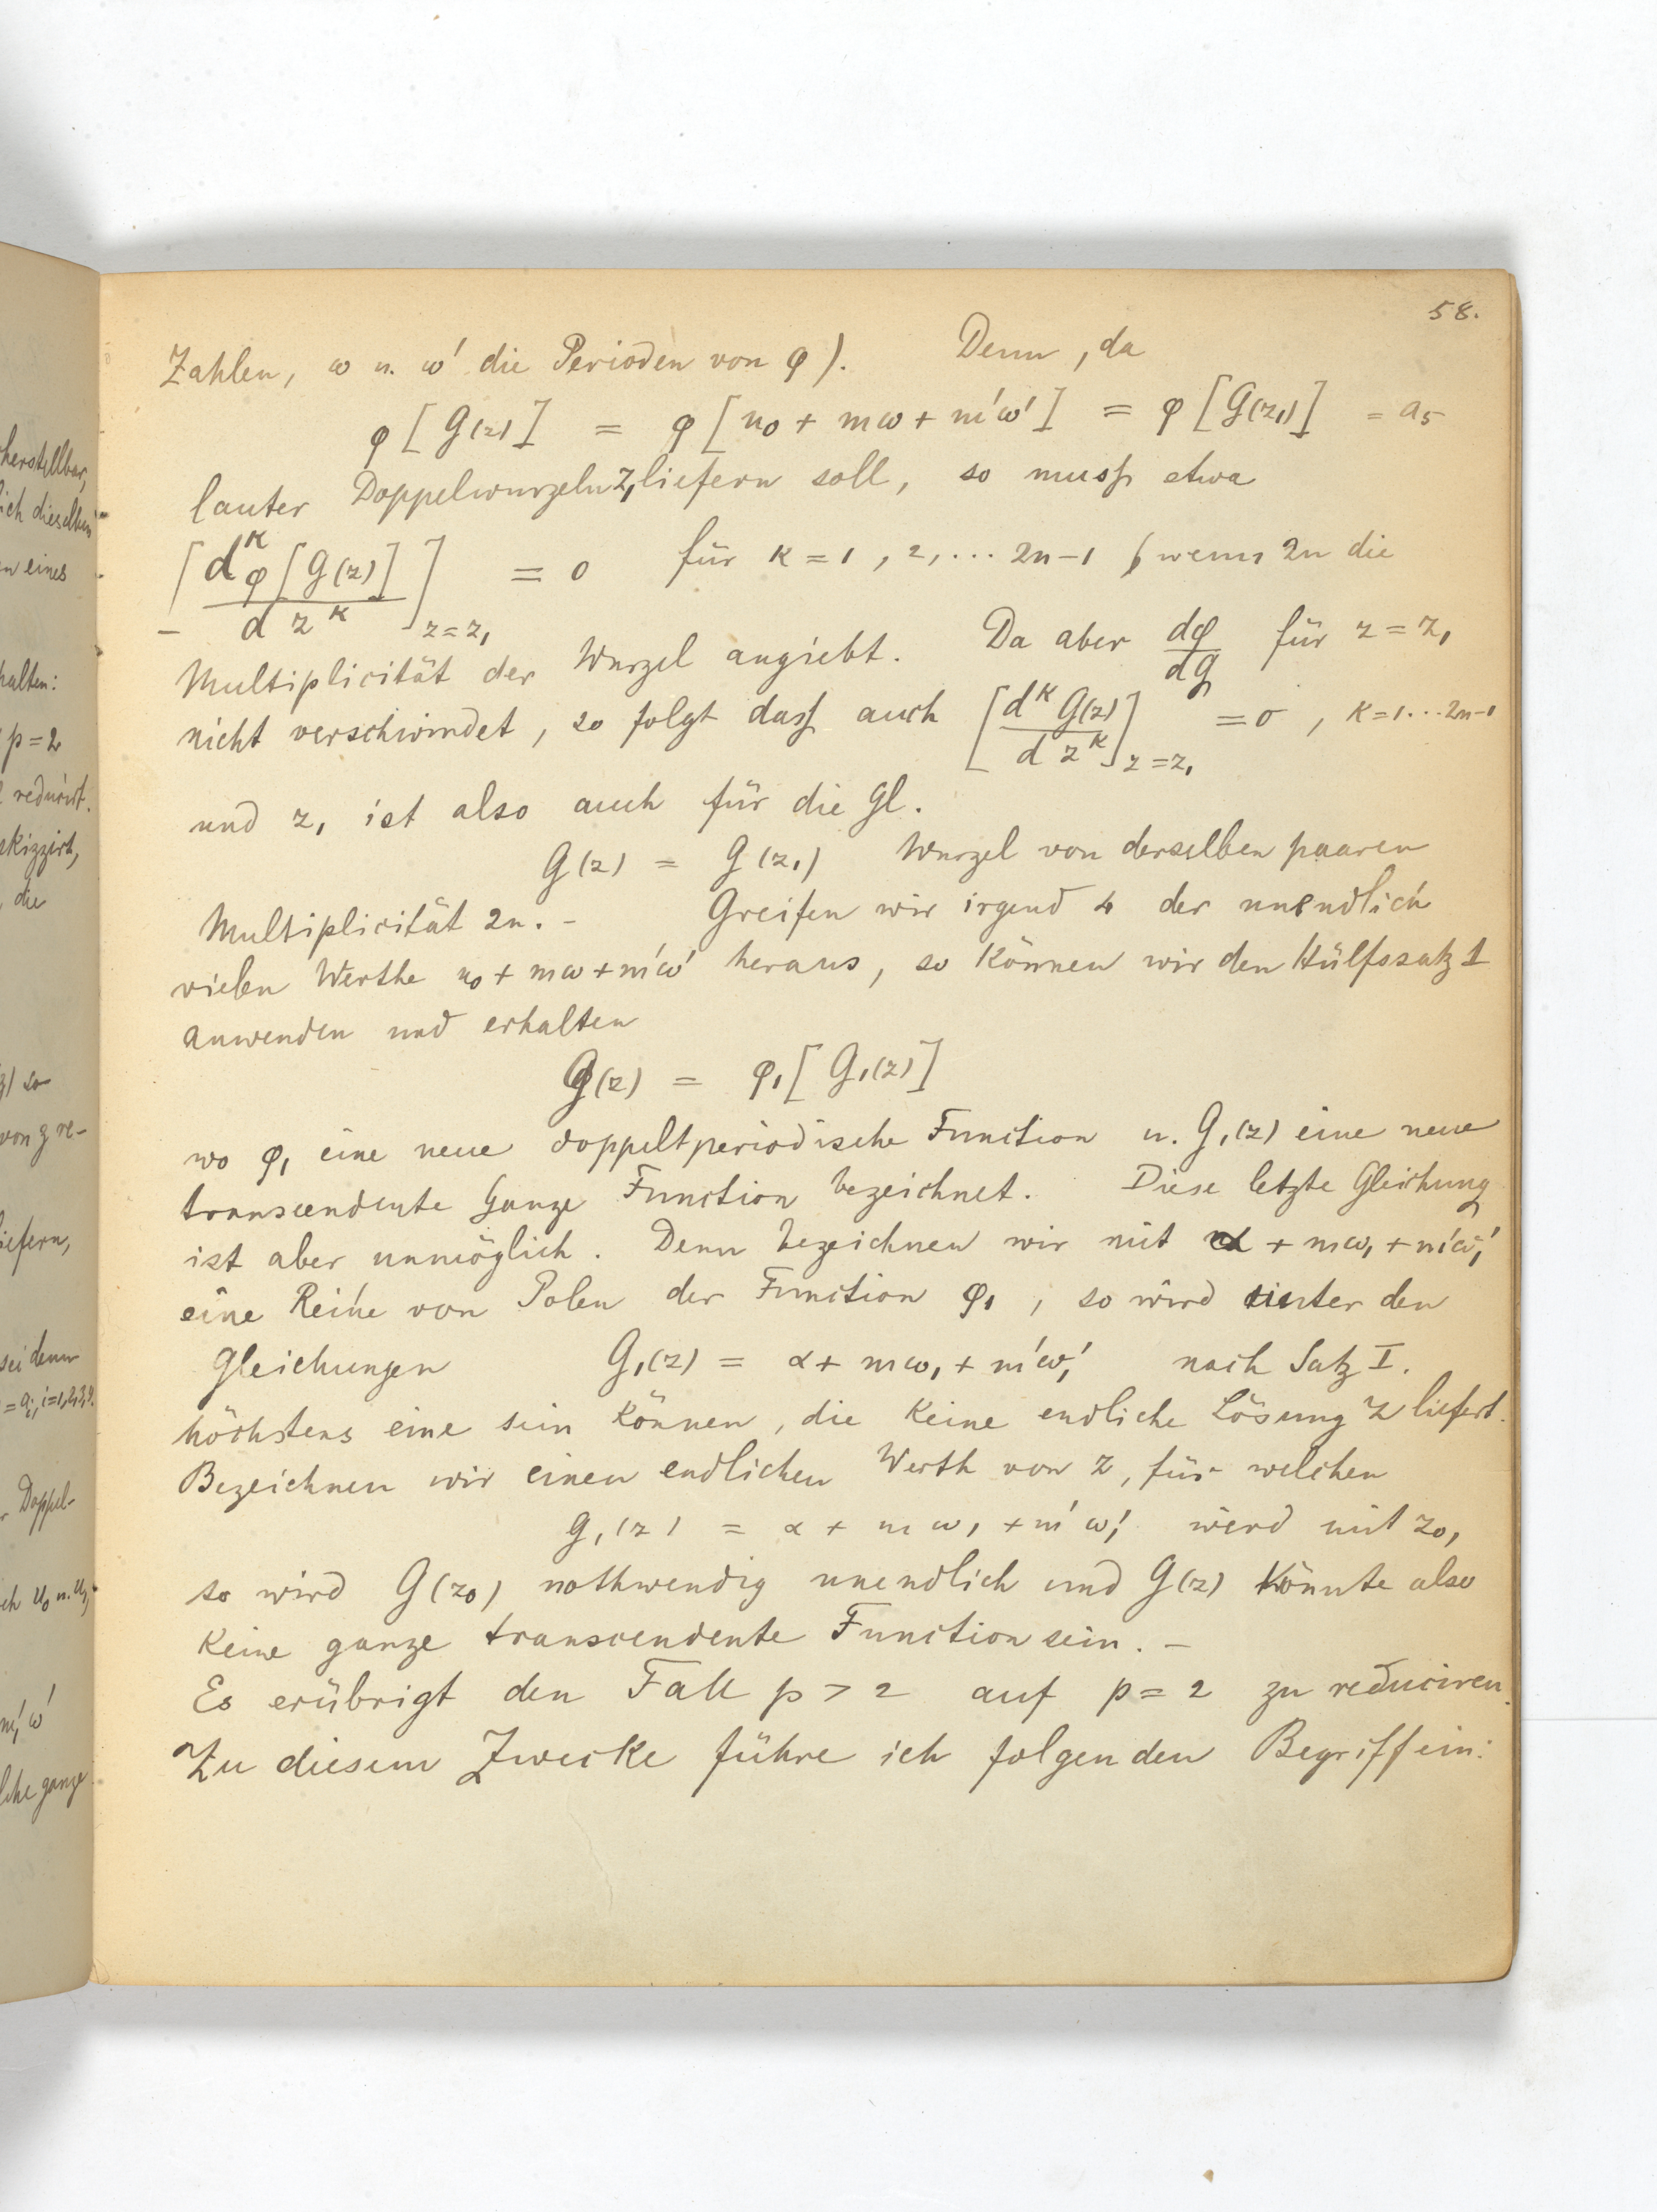 herstellbar,
ich dieselben
n eines
halten:
p = 2
reducirt.
skizzirt,
, die
von z re-
liefern,
sei denn
= aᵢ, i=1,2,3,4.
Doppel-
ch u₀ u. u₁,
m', ω'
lche ganze
58.
Zahlen, ω u. ω' die Perioden von φ). Denn, da
φ[G(z)] = φ[u₀ + mω + m'ω'] = φ[G(z₁)] = a₅
lauter Doppelwurzeln z₁ liefern soll, so muss etwa
[d^κ φ[G(z)] / dz^κ]_{z=z₁} = 0 für κ = 1, 2, ... 2n-1 (wenn 2n die
Multiplicität der Wurzel angiebt. Da aber dφ/dG für z = z₁
nicht verschwindet, so folgt dass auch [d^κ G(z) / dz^κ]_{z=z₁} = 0, κ=1...2n-1
und z₁ ist also auch für die Gl.
G(z) = G(z₁) Wurzel von derselben paaren
Multiplicität 2n. - Greifen wir irgend 4 der unendlich
vielen Werthe u₀ + mω + m'ω' heraus, so können wir den Hülfssatz 1
anwenden und erhalten
G(z) = φ₁[G₁(z)]
wo φ₁ eine neue doppeltperiodische Function u. G₁(z) eine neue
transcendente Ganze Function bezeichnet. Diese letzte Gleichung
ist aber unmöglich. Denn bezeichnen wir mit α + mω₁ + m'ω₁'
eine Reihe von Polen der Function φ₁, so wird unter den
Gleichungen G₁(z) = α + mω₁ + m'ω₁' nach Satz I.
höchstens eine sein können, die keine endliche Lösung z liefert.
Bezeichnen wir einen endlichen Werth von z, für welchen
G₁(z) = α + mω₁ + m'ω₁' wird mit z₀,
so wird G(z₀) nothwendig unendlich und G(z) könnte also
keine ganze transcendente Function sein. -
Es erübrigt den Fall p > 2 auf p = 2 zu reduciren.
Zu diesem Zwecke führe ich folgenden Begriff ein: